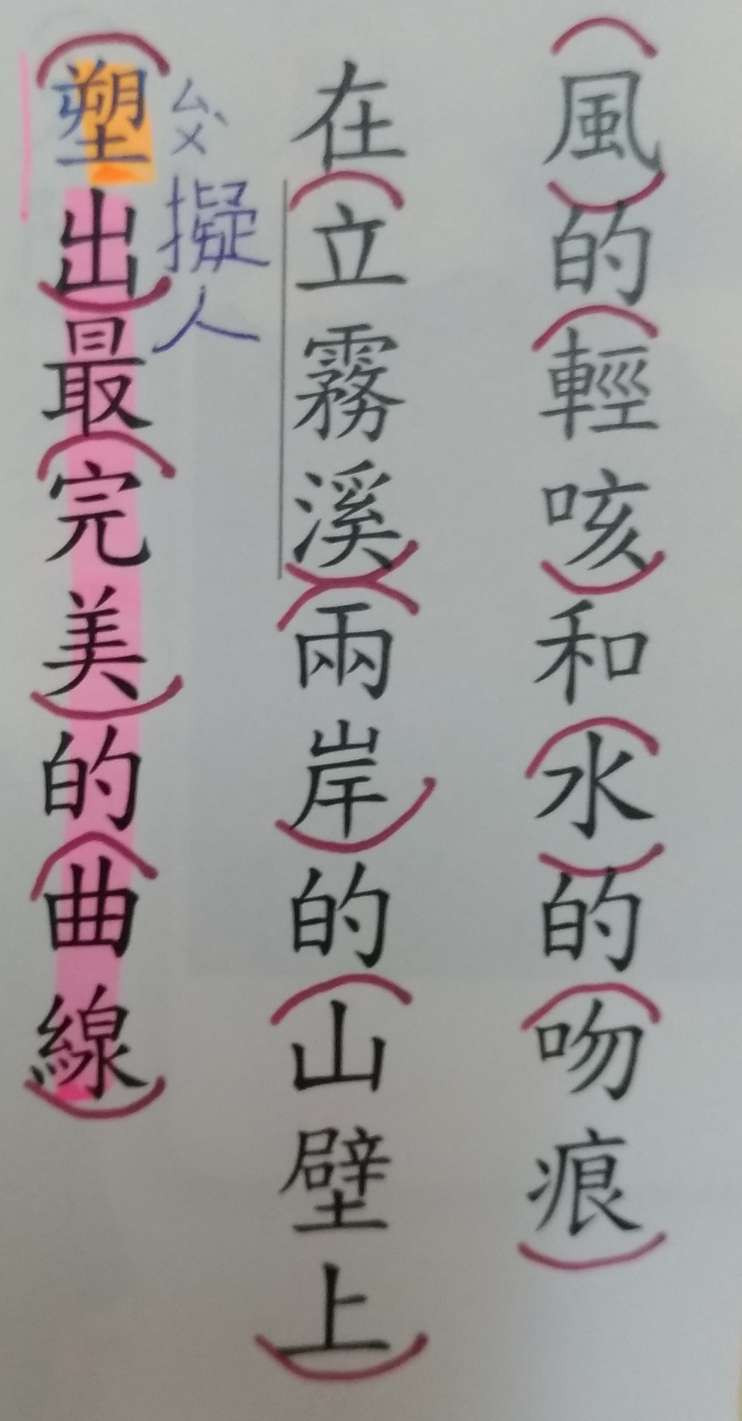 風的輕咳和水的吻痕
在立霧溪兩岸的山壁上
塑出最完美的曲線
ㄙㄨˋ
擬人